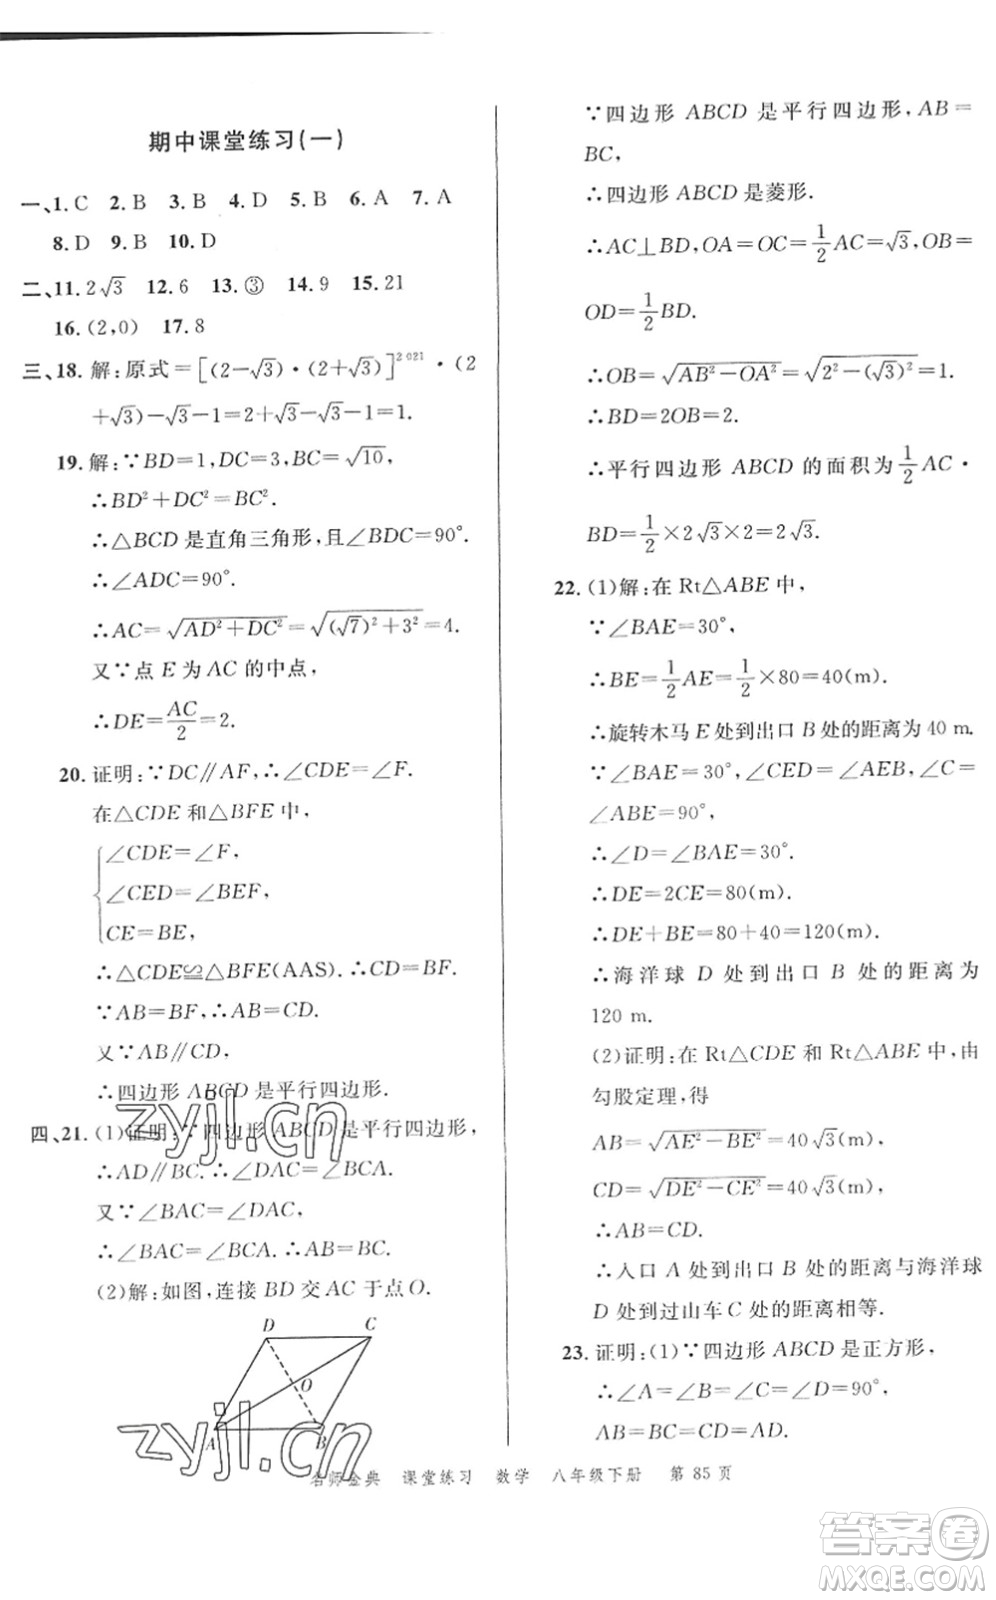 期中课堂练习(一)
一、1. C 2. B 3. B 4. D 5. B 6. A 7. A
8. D 9. B 10. D
二、11. 2√3 12. 6 13. ③ 14. 9 15. 21
16. (2,0) 17. 8
三、18. 解:原式=[(2-√3)·(2+√3)]²⁰²¹·(2
+√3)-√3-1=2+√3-√3-1=1.
19. 解:∵BD=1,DC=3,BC=√10,
∴BD²+DC²=BC².
∴△BCD是直角三角形,且∠BDC=90°.
∴∠ADC=90°.
∴AC=√(AD²+DC²)=√((√7)²+3²)=4.
又∵点 E 为 AC 的中点,
∴DE=AC/2=2.
20. 证明:∵DC∥AF,∴∠CDE=∠F.
在△CDE 和△BFE 中,
∠CDE=∠F,
∠CED=∠BEF,
CE=BE,
∴△CDE≌△BFE(AAS).∴CD=BF.
∵AB=BF,∴AB=CD.
又∵AB∥CD,
∴四边形 ABCD是平行四边形.
四、21. (1)证明:∵四边形 ABCD是平行四边形,
∴AD∥BC.∴∠DAC=∠BCA.
又∵∠BAC=∠DAC,
∴∠BAC=∠BCA.∴AB=BC.
(2)解:如图,连接 BD 交 AC 于点O.
D C
O
A B
∵四边形 ABCD 是平行四边形,AB=
BC,
∴四边形 ABCD是菱形.
∴AC⊥BD,OA=OC=1/2 AC=√3,OB=
OD=1/2 BD.
∴OB=√(AB²-OA²)=√(2²-(√3)²)=1.
∴BD=2OB=2.
∴平行四边形 ABCD 的面积为 1/2 AC·
BD=1/2×2√3×2=2√3.
22. (1)解:在 Rt△ABE 中,
∵∠BAE=30°,
∴BE=1/2 AE=1/2×80=40(m).
∴旋转木马 E 处到出口 B 处的距离为 40 m.
∵∠BAE=30°,∠CED=∠AEB,∠C=
∠ABE=90°,
∴∠D=∠BAE=30°.
∴DE=2CE=80(m).
∴DE+BE=80+40=120(m).
∴海洋球 D 处到出口 B 处的距离为
120 m.
(2)证明:在 Rt△CDE 和 Rt△ABE 中,由
勾股定理,得
AB=√(AE²-BE²)=40√3(m),
CD=√(DE²-CE²)=40√3(m),
∴AB=CD.
∴入口 A 处到出口 B 处的距离与海洋球
D 处到过山车 C 处的距离相等.
23. 证明:(1)∵四边形 ABCD是正方形,
∴∠A=∠B=∠C=∠D=90°,
AB=BC=CD=AD.
名师金典 课堂练习 数学 八年级下册 第 85 页
zyjl.cn
zyjl.cn
答案卷
MXQE.COM